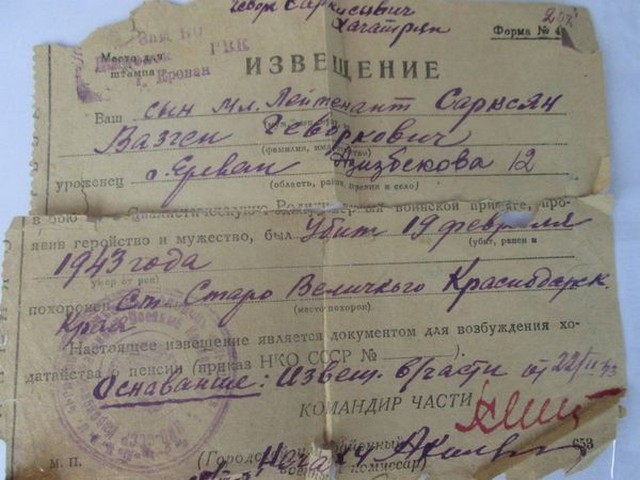 Геворк Саркисович
Хачатрян
Форма № 4
РВК
Место для
штампа
г. Ереван
ИЗВЕЩЕНИЕ
Ваш сын мл. Лейтенант Сарксян
Вазген Геворкович
(фамилия, имя
уроженец г. Ереван Азизбекова 12
(область, район, деревня и село)
в бою за Социалистическую Родину, верный воинской присяге, про-
явив геройство и мужество, был Убит 19 февраля
(убит, ранен и
1943 года
умер от ран)
похоронен Ст. Старо Величкого Краснодарск.
(место похорон)
Края
Настоящее извещение является документом для возбуждения хо-
датайства о пенсии (приказ НКО СССР №        ).
Оснавание: Извещ. в/части от 22/II 43
КОМАНДИР ЧАСТИ
653
М. П.
(Городской районный
комиссар)